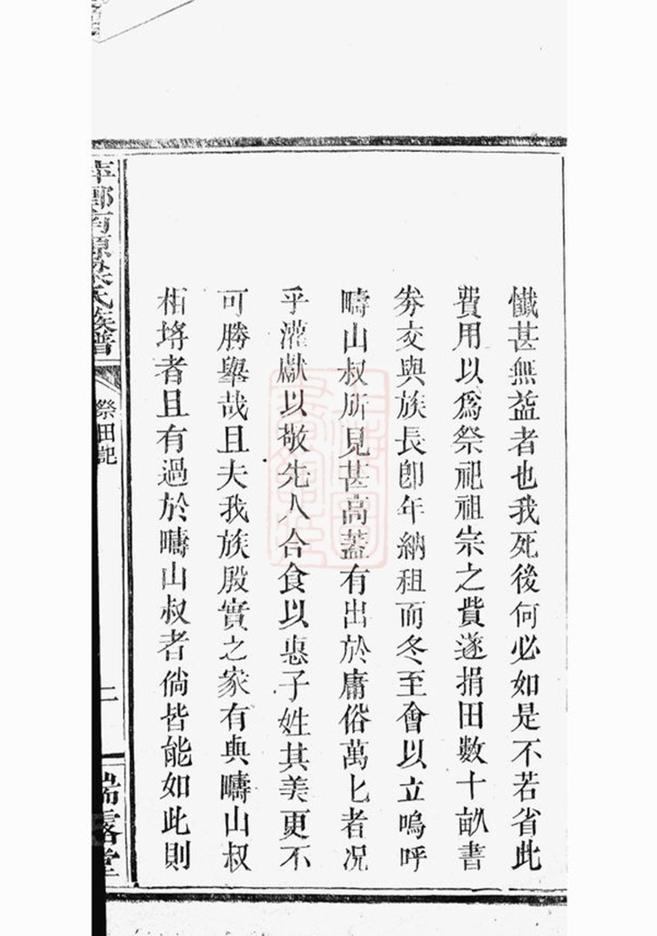 懺甚無益者也我死後何必如是不若省此
費用以爲祭祀祖宗之費遂捐田數十畝書
券交與族長卽年納租而冬至會以立嗚呼
疇山叔所見甚高蓋有出於庸俗萬匕者况
乎灌獻以敬先人合食以惠子姓其美更不
可勝舉哉且夫我族殷實之家有與疇山叔
相埓者且有過於疇山叔者倘皆能如此則
南源
氏族譜
祭田記
二